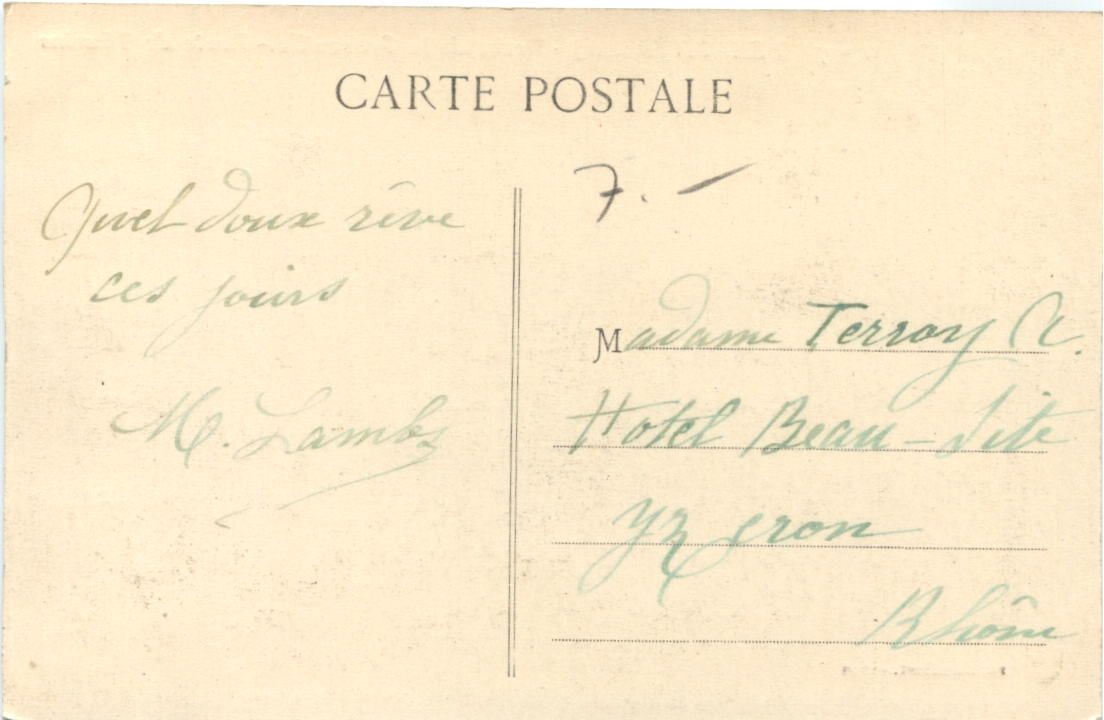 CARTE POSTALE
Quel doux rêve
ces jours
M. Lamb
7.-
Madame Terray
Hotel Beau-Site
Yzeron
Rhône